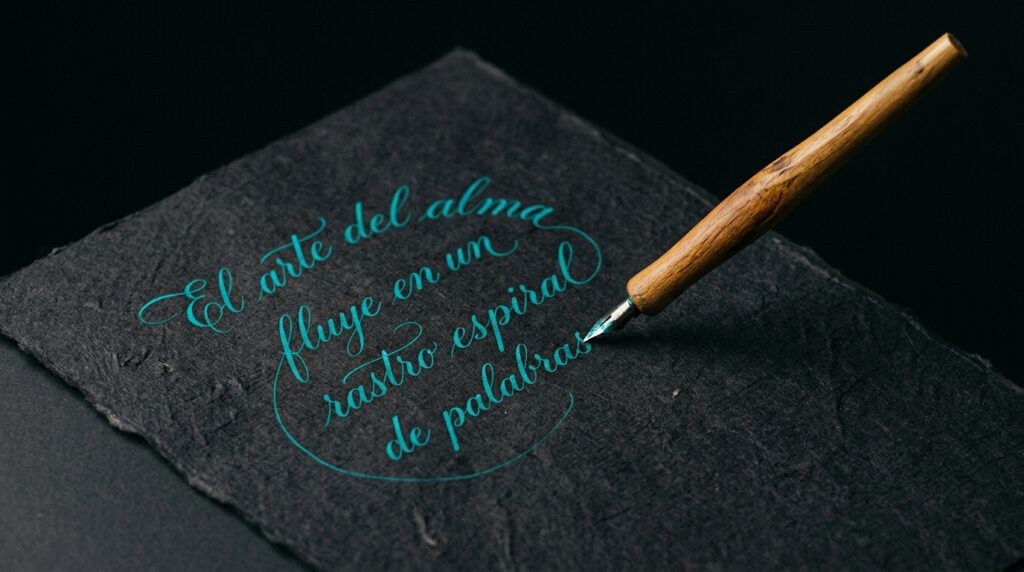 El arte del alma
fluye en un
rastro espiral
de palabras